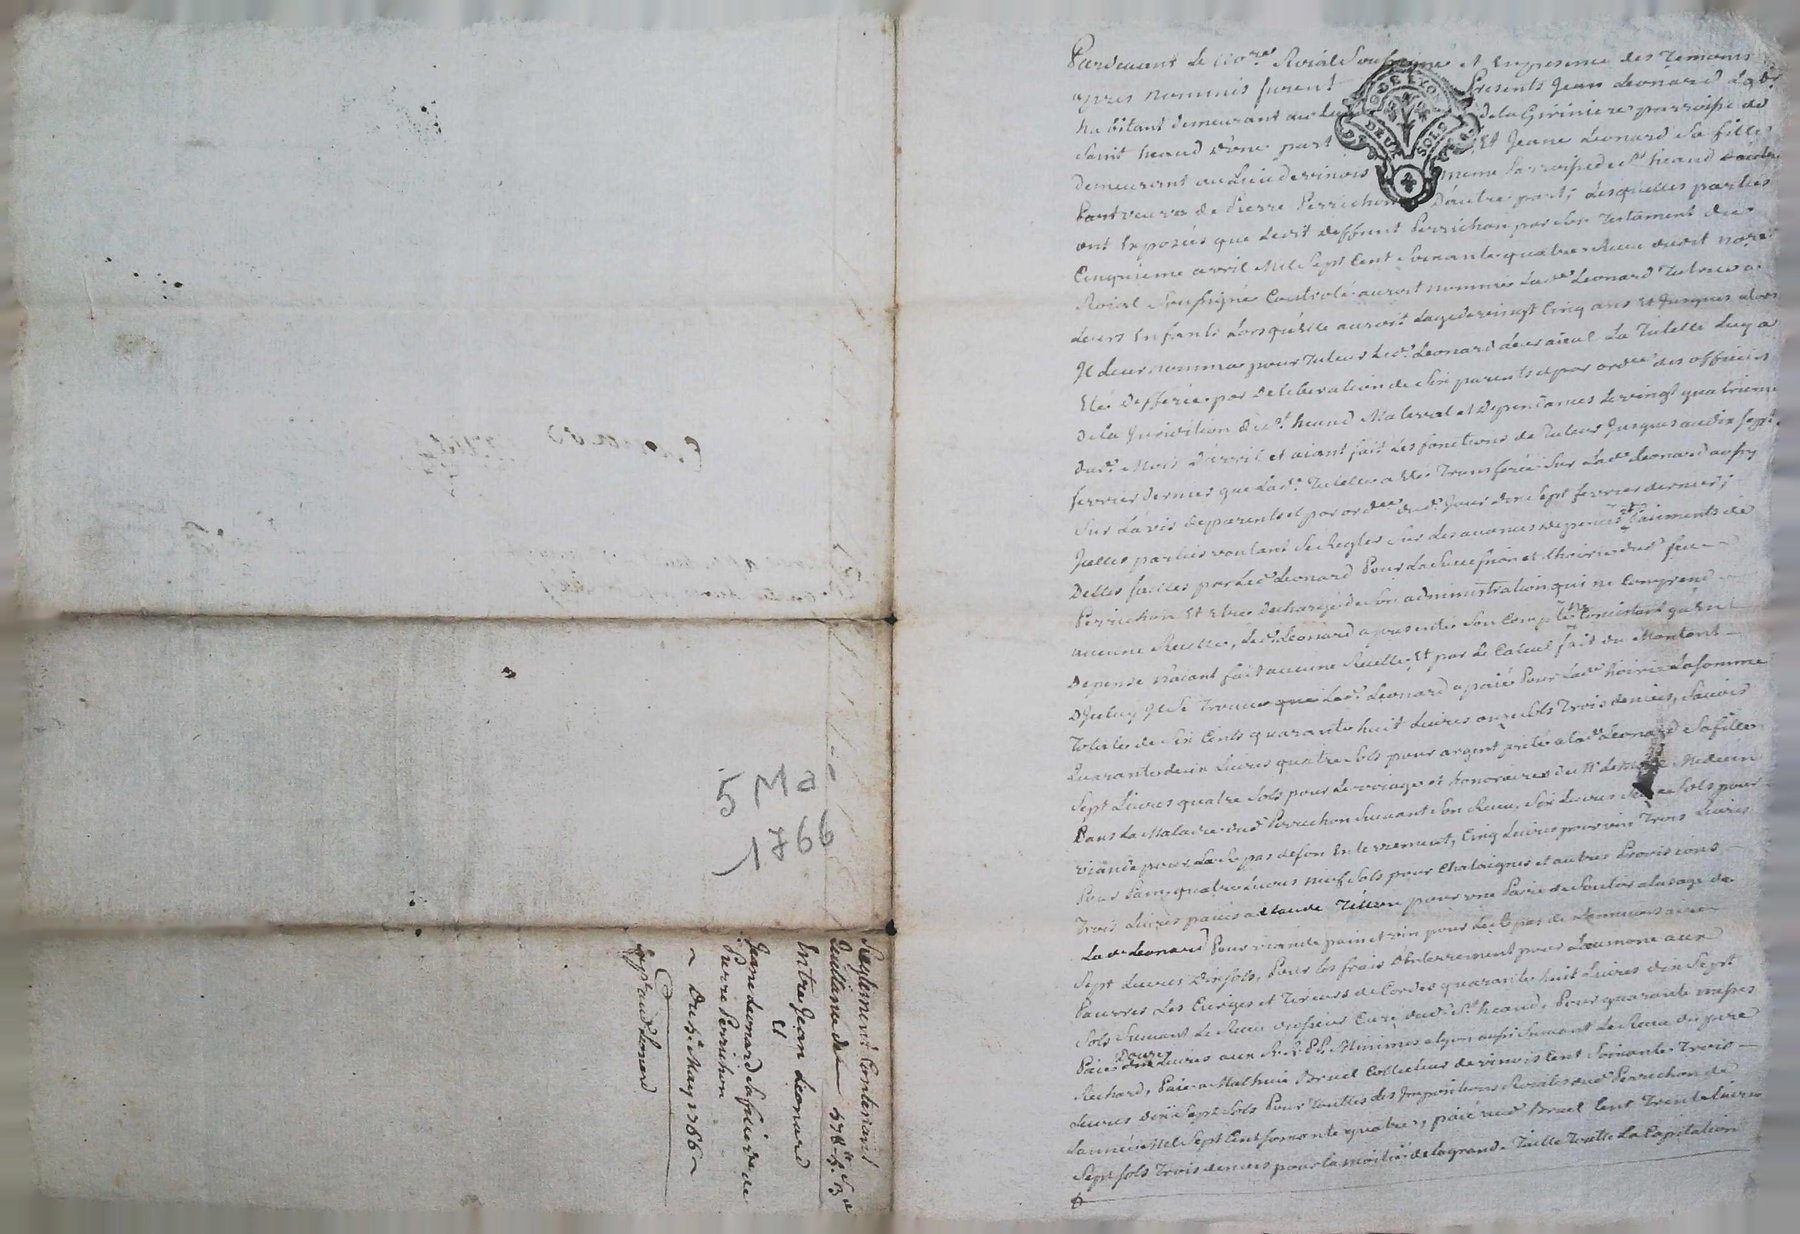 Pardevant Le No.re Roial Soussigné et En presence des Temoins
apres nommés furent Presents Jean Leonard
habitant demeurant au Lieu de la Giriniere parroisse de
Saint heand d'une part Et Jeane Leonard Sa fille
demeurant au Lieu de vinois meme Parroisse de St heand
veuve de Pierre Perrichon D'autre part, Lesquelles parties
ont Exposées que Ledit deffunt Perrichon par Son Testament du
Cinquieme avril Mil Sept Cent Soixante quatre Receu dudit No.re
Roial Soussigné Controlé auroit nommé La de Leonard Tutrice a
Leurs Enfants Lorsqu'Elle auroit Lage de vingt Cinq ans Et Jusques alors
Il Leur nomma pour Tuteur Led. Leonard Leur aieul La Tutelle Luy a
Eté Defferée par Deliberation de Six parents et par ord.ce des officiers
De La Juridition de St heand Maleval et Dependances Le vingt quatrieme
dud. Mois D'avril et aiant fait Les fonctions de Tuteur Jusques au dix Sept
fevrier dernier que Lad. Tutelle a Eté Transferée Sur Lad. Leonard
Sur L'avis de parents et par ord.ce dud. Jour dix Sept fevrier dernier;
Icelles parties voulant Se Regler Sur Les avances depences et Paiements de
Dettes faittes par Led. Leonard Pour La Succession et L'hoirie dud. feu
Perrichon Et Etre Dechargé de Son administration qui ne Comprend
aucune Recette, Led. Leonard a presenté Son Compte Consistant qu'En
Depense N'aiant fait aucune Recette, Et par Le Calcul fait du Montant
D'Iceluy Il Se Trouve que Led. Leonard a paié Pour Lad. hoirie La Somme
Totalle de Six Cents quarante huit Livres onze Sols Trois deniers, Savoir
Quarante deux Livres quatre Sols pour argent preté a lad. Leonard Sa fille
Sept Livres quatre Sols pour Le voiage et honoraires du Sr Medecin
Dans La Maladie dud. Perrichon Suivant Son Receu, Six Livres Sols pour
viande pour Le Repas de Son Enterrement, Cinq Livres pour vin Trois Livres
Pour Pain, quatre Livres neuf Sols pour Chataignes et autres Provisions
Trois Livres paiées a Claude pour une Paire de Soulier a Lusage de
La de Leonard Pour viande pain et vin pour Le Repas de Lanniversaire
Sept Livres Dix Sols, Pour Les frais D'Enterrement pour L'aumone aux
Pauvres Les Cierges et Tireurs de Cordes quarante huit Livres dix Sept
Sols Suivant Le Receu de Messieur Curé dud. St heand, Pour quarante messes
Paié Douze Livres aux R. R. P. P. Minimes a Lyon aussi Suivant Le Receu du pere
Richard, Paié a Mathieu Bruel Collecteur de vinois Cent Soixante Trois
Livres dix Sept Sols Pour Touttes Les Impositions Roiales dud. Perrichon de
L'année Mil Sept Cent Soixante quatre, paié aud. Bruel Cent Trente Livres
Sept Sols Trois deniers pour La moitié de La grande Taille Toutte La Capitation
G. DE LYON
DEUX SOLS
5 Mai
1766
Reglement Contenant
Quittance de
Entre Jean Leonard
Et
Jeane Leonard Sa fille ve de
Pierre Perrichon
Du 5e May 1766
Exp.on aud. Leonard